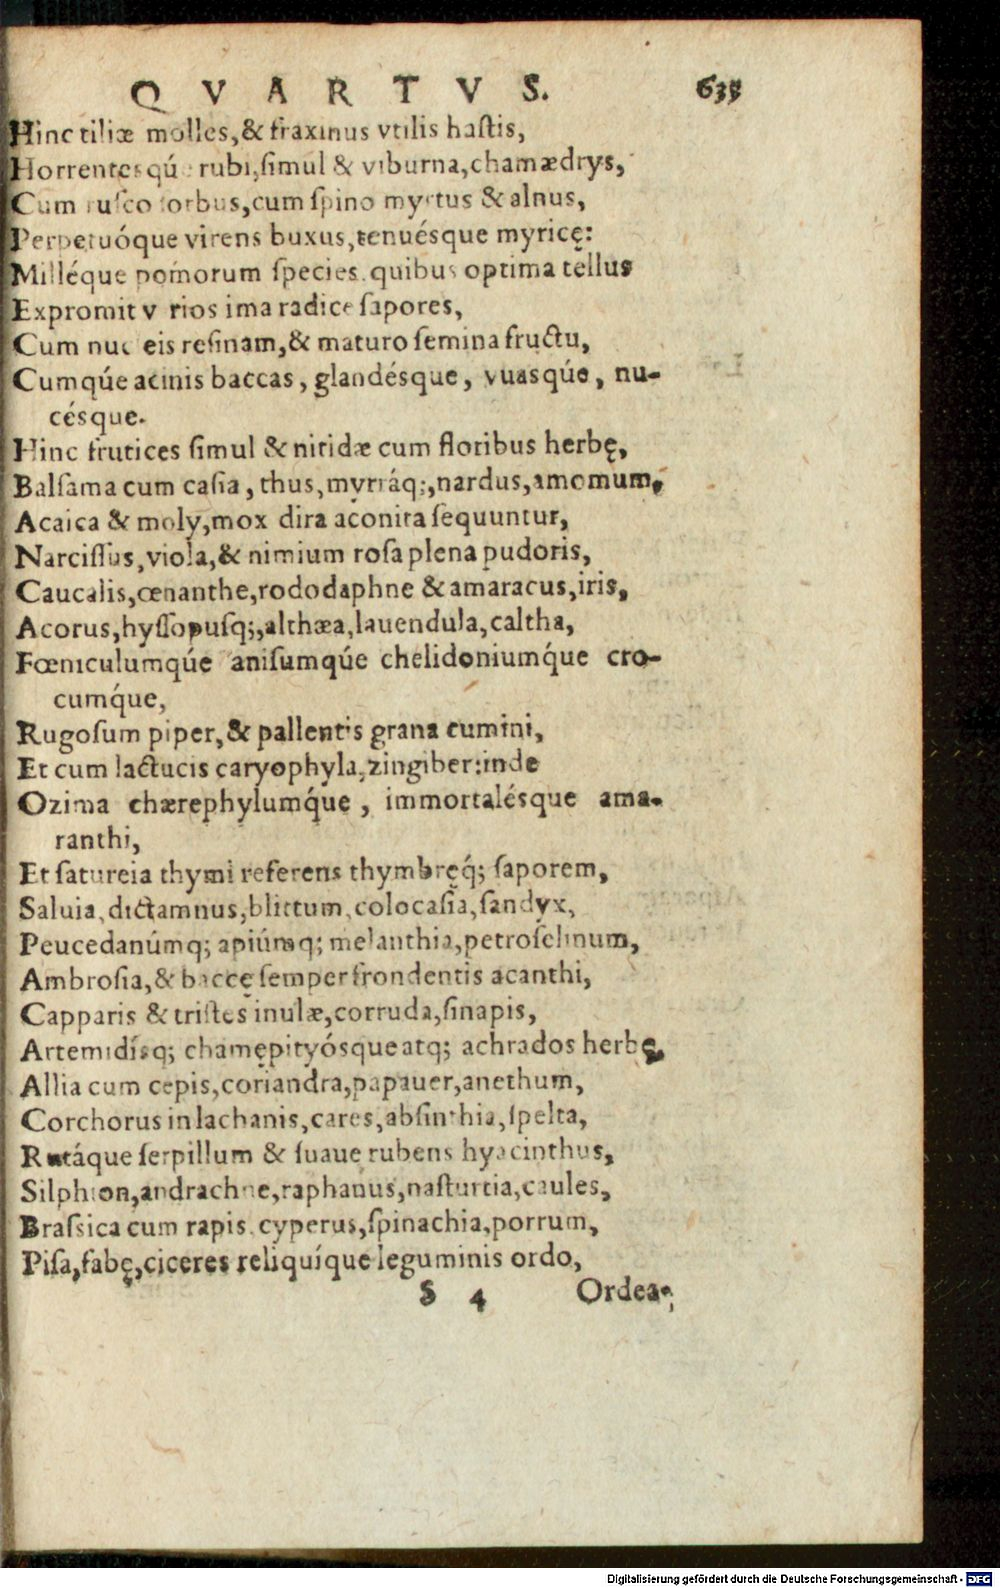 QVARTVS. 635
Hinc tiliæ molles, & fraxinus vtilis hastis,
Horrentesqúe rubi, simul & viburna, chamædrys,
Cum rusco sorbus, cum spino myrtus & alnus,
Perpetuóque virens buxus, tenuésque myricę:
Milléque pomorum species, quibus optima tellus
Expromit varios ima radice sapores,
Cum nuceis resinam, & maturo semina fructu,
Cumqúe acinis baccas, glandésque, vuasqúe, nu-
césque.
Hinc frutices simul & nitidæ cum floribus herbę,
Balsama cum casia, thus, myrráq;, nardus, amomum,
Acaica & moly, mox dira aconita sequuntur,
Narcissus, viola, & nimium rosa plena pudoris,
Caucalis, œnanthe, rododaphne & amaracus, iris,
Acorus, hyssopusq;, althæa, lauendula, caltha,
Fœniculumqúe anisumqúe chelidoniumq́ue cro-
cumq́ue,
Rugosum piper, & pallentis grana cumini,
Et cum lactucis caryophyla, zingiber: inde
Ozima chærephylumq́ue, immortalésque ama-
ranthi,
Et satureia thymi referens thymbręq́; saporem,
Saluia, dictamnus, blittum, colocasia, sandyx,
Peucedanúmq; apiúmq; melanthia, petroselinum,
Ambrosia, & baccę semper frondentis acanthi,
Capparis & tristes inulæ, corruda, sinapis,
Artemidísq; chamępityósque atq; achrados herbę,
Allia cum cepis, coriandra, papauer, anethum,
Corchorus in lachanis, cares, absinthia, spelta,
Rutáque serpillum & suaue rubens hyacinthus,
Silphion, andrachne, raphanus, nasturtia, caules,
Brassica cum rapis, cyperus, spinachia, porrum,
Pisa, fabę, ciceres reliquíque leguminis ordo,
S 4 Ordea-
Digitalisierung gefördert durch die Deutsche Forschungsgemeinschaft - DFG